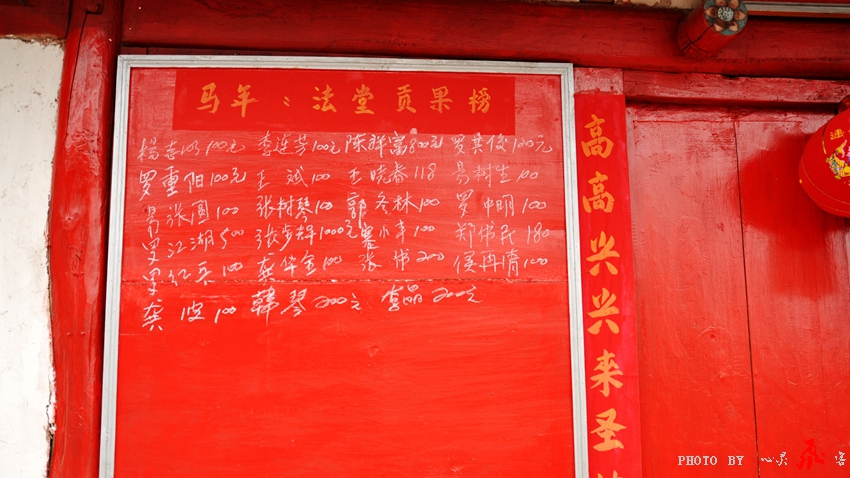 马年：法堂贡果榜
楊志 100元 李连芳100元 陈祥富800元 罗其俊120元
罗重阳100元 王斌100 王晓春118 易树生100
易张圆100 张树琴100 郭冬林100 罗中明100
罗江湖500 张步辉1000元 小平100 郑伟民180
红英100 龚华金100 张伟200 100
龚波100 韩琴200元 李晶200元
高高兴兴来圣
PHOTO BY 心灵 客